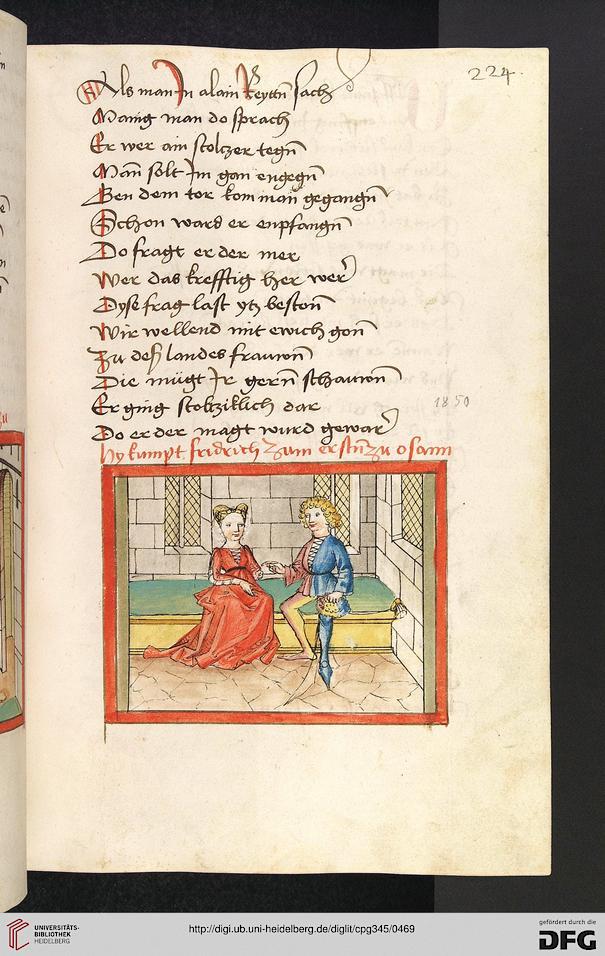 224.
Als man In alain Reyttn sach
Maing man do sprach
Er wer ain stoltzer tegn
Man solt Im gan engegn
Ben dem tor kom man gegangn
Schon ward er enpfangn
Do fragt er der mer
Wer das krefftig her wer
Dyse frag last ytz beston
Wir wellend mit ewich gon
Zu des landes frauwen
Die mügt Ir gern schauwen
Er ging stoltzillich dar
1850
Do er der magt wurd gewar
hy kumpt fridrich zum erstn zu osann
UNIVERSITÄTS-
BIBLIOTHEK
HEIDELBERG
http://digi.ub.uni-heidelberg.de/diglit/cpg345/0469
gefördert durch die
DFG